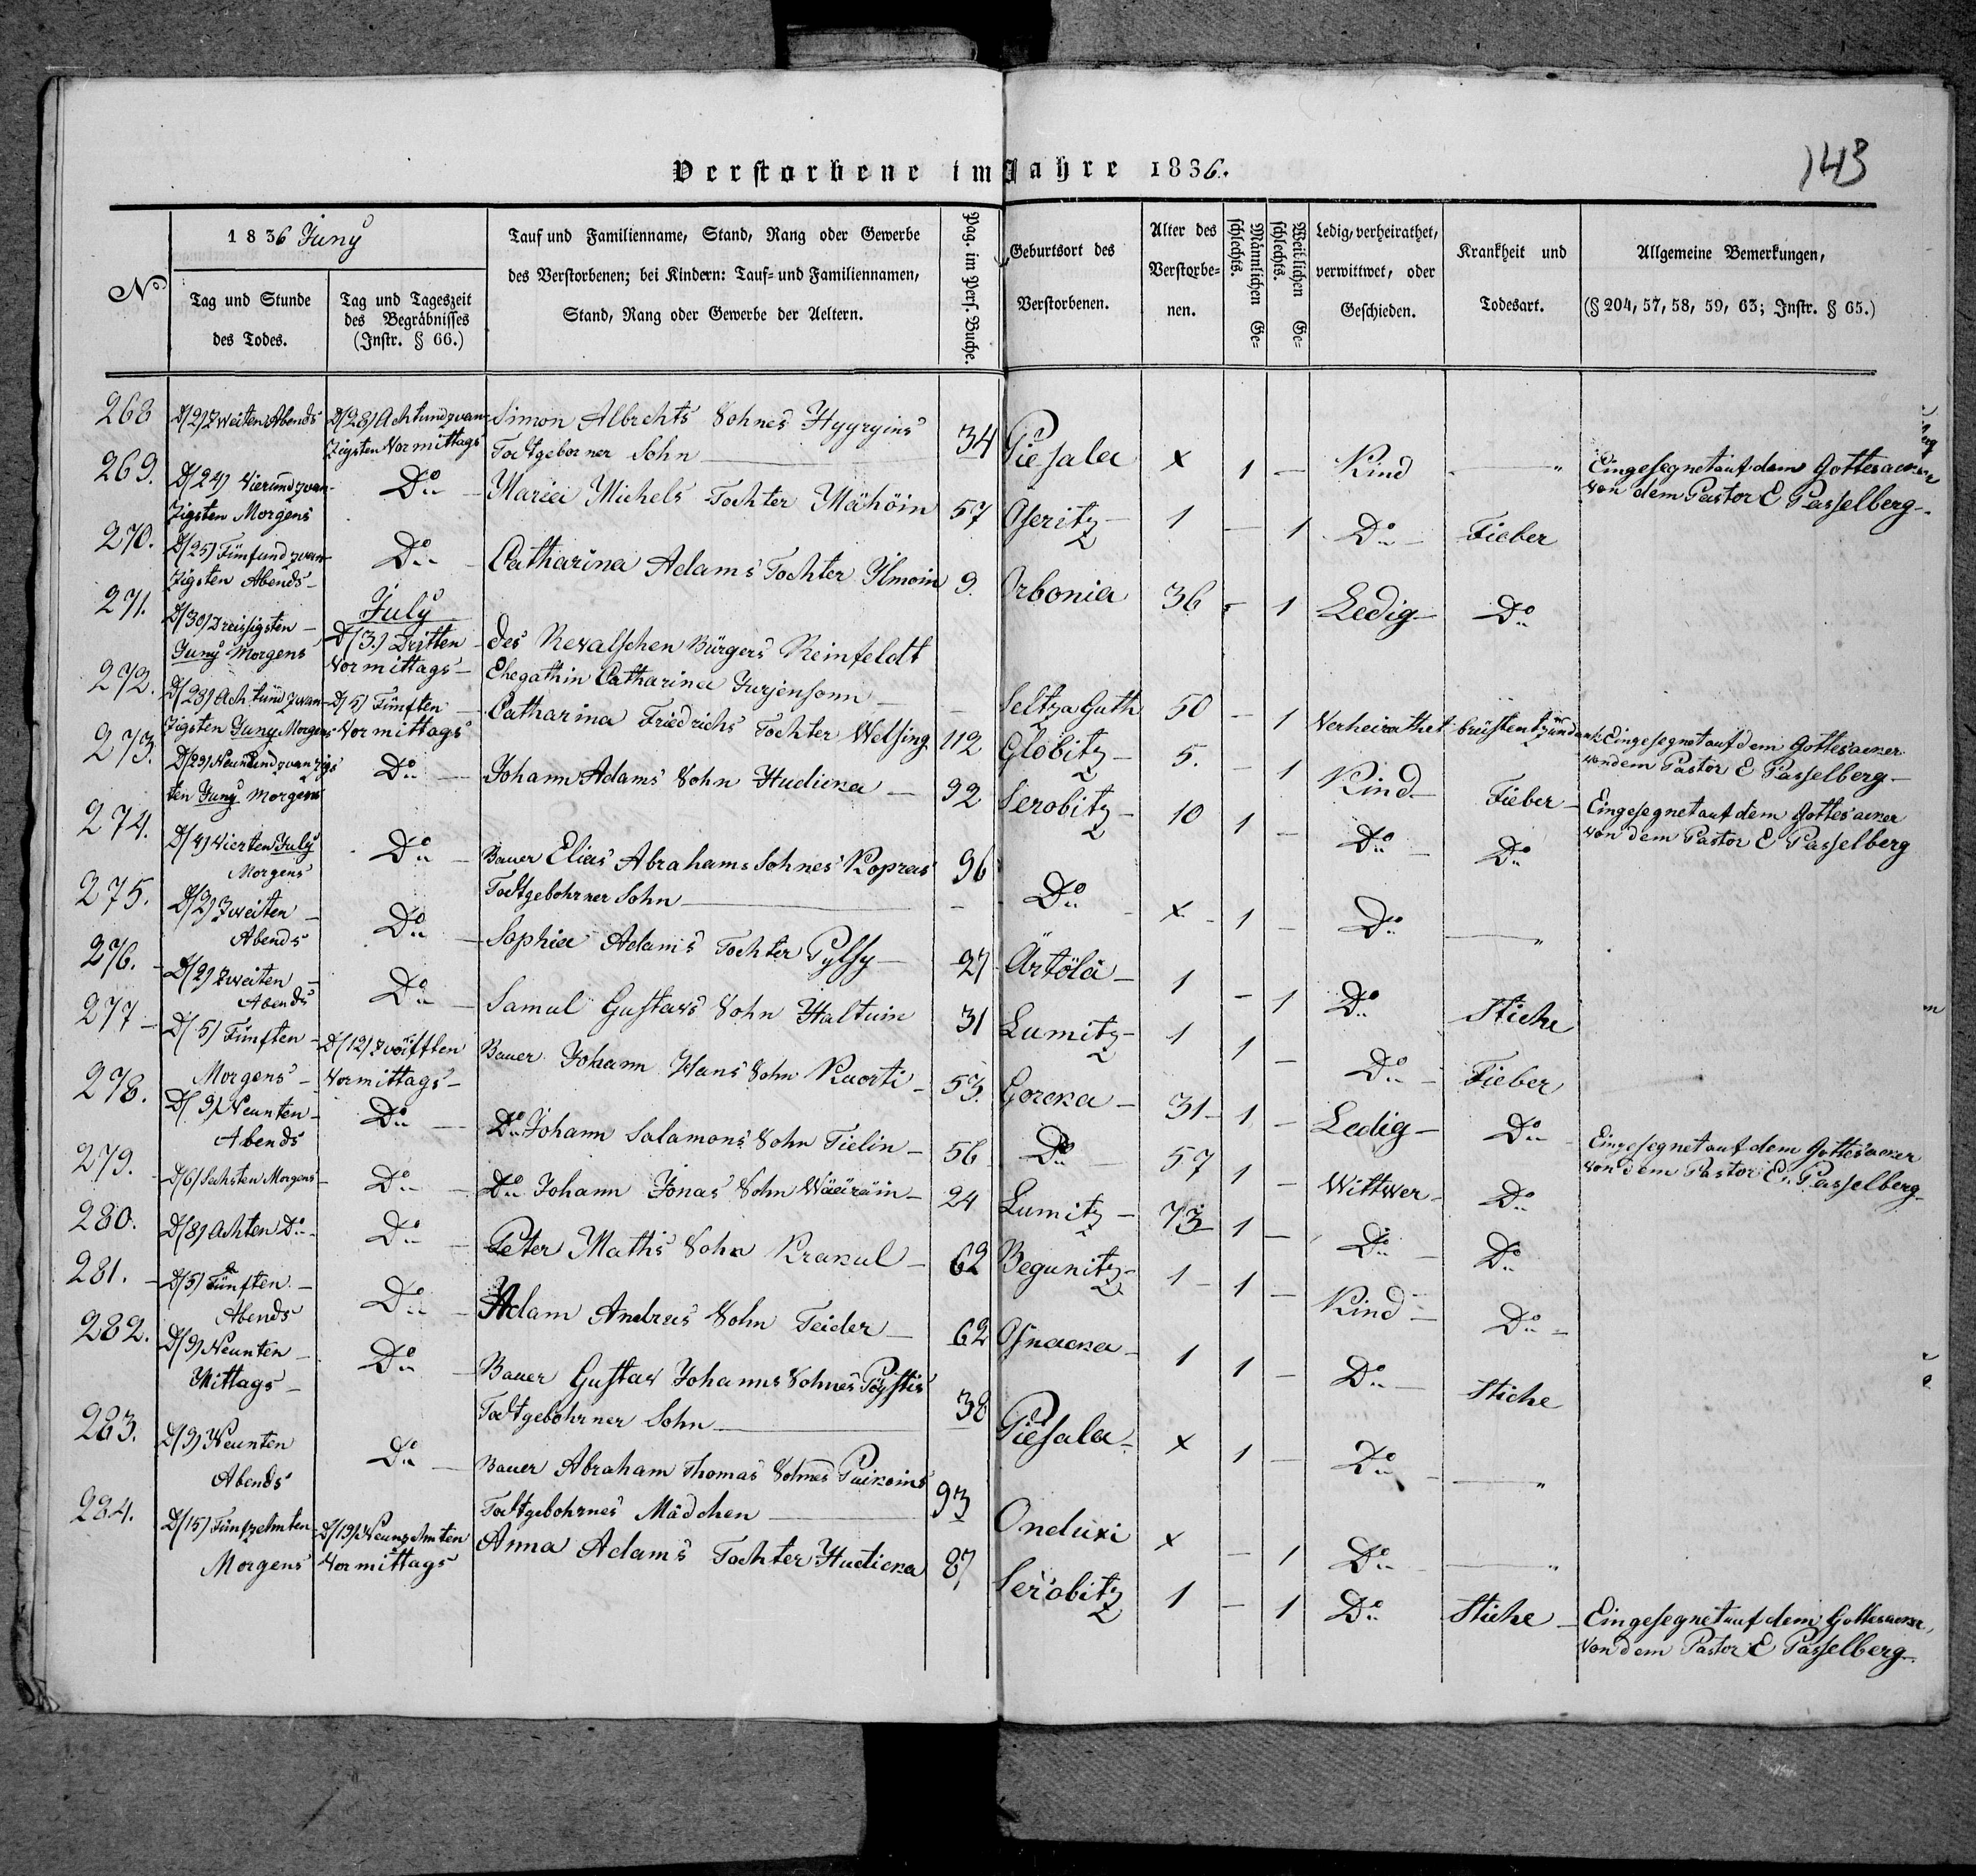 Verstorbene im Jahre 1836.
143
No
1836 Juny
Tag und Stunde
des Todes.
Tag und Tageszeit
des Begräbnisses
(Instr. § 66.)
Tauf und Familienname, Stand, Rang oder Gewerbe
des Verstorbenen; bei Kindern: Tauf- und Familiennamen,
Stand, Rang oder Gewerbe der Aeltern.
Pag. im Pers. Buche.
Geburtsort des
Verstorbenen.
Alter des
Verstorbe-
nen.
Männlichen Ge-
schlechts.
Weiblichen Ge-
schlechts.
Ledig, verheirathet,
verwittwet, oder
Geschieden.
Krankheit und
Todesart.
Allgemeine Bemerkungen,
(§ 204, 57, 58, 59, 63; Instr. § 65.)
268 D/2/ Zweiten Abends D/28/ Achtundzwan- Simon Albrechts Sohnes Hyyryins
zigsten Vormittags Todtgeborner Sohn — 34 Piesala x 1 — Kind — " Eingesegnet auf dem Gottesacker
von dem Pastor E Passelberg -
269. D/24/ Vierundzwan- Do - Maria Michels Tochter Mähöin 57 Oseritz - 1 — 1 Do - Fieber
zigsten Morgens
270. D/25/ Fünfundzwan- Do - Catharina Adams Tochter Ilmoin 9. Orbonia 36 - 1 Ledig - Do
zigsten Abends -
July
271. D/30/ Dreissigsten - D/3./ Dritten - des Revalschen Bürgers Reinfeldt
Juny Morgens Vormittags - Ehegathin Catharina Jurjensonn — - Seltza Guth 50 - 1 Verheirathet brustentzündung Eingesegnet auf dem Gottesacker
von dem Pastor E Passelberg -
272. D/28/ Achtundzwan- D/5/ Fünften - Catharina Friedrichs Tochter Welsing 112 Globitz - 5. - 1 Kind - Fieber - Eingesegnet auf dem Gottesacker
zigsten Juny Morgens Vormittags von dem Pastor E Passelberg
273. D/29/ Neunundzwanzigs Do - Johann Adams Sohn Hudicka - 92 Serobitz - 10 1 - Do - Do
ten Juny Morgens
274. D/4/ Vierten July Do - Bauer Elias Abrahams Sohnes Kopras 96
Morgens Todtgebohrner Sohn — - Do - x - 1 - Do — "
275. D/2/ Zweiten - Do - Sophia Adams Tochter Pylsy - 27 Ärtölä - 1 - 1 Do Stiche
Abends
276. - D/2/ Zweiten - Do - Samul Gustavs Sohn Haltuin 31 Lumitz - 1 1 - Do - Fieber
Abends
277 - D/5/ Fünften - D/12/ Zwölfften Bauer Johann Hans Sohn Kuorti - 53. Gorcka - 31 - 1 - Ledig - Do - Eingesegnet auf dem Gottesacker
Morgens - Vormittags - von dem Pastor E. Passelberg -
278. D/9/ Neunten - Do - Do Johann Salamons Sohn Tielin - 56 Do - 57 1 - Wittwer - Do
Abends
279. - D/6/ Sechsten Morgens - Do - Do Johann Jonas Sohn Wäeiräin - 24 Lumitz - 73 - 1 - Do - Do
280. D/8/ Achten Do - Do - Peter Mathis Sohn Krakul - 62 Begunitz - 1 - 1 - Kind - Do -
281. - D/5/ Fünften - Do - Adam Andreas Sohn Teider - 62 Osnacka - 1 1 - Do - Stiche
Abends
282. D/9/ Neunten - Do - Bauer Gustav Johanns Sohnes Pöystis
Mittags - Todtgebohrner Sohn — 38 Piesala - x 1 - Do - — "
283. D/9/ Neunten Do - Bauer Abraham Thomas Sohnes Puikoins
Abends Todtgebohrnes Mädchen — 93 Onduxi x - 1 Do - — "
284. D/15/ Fünfzehnten D/19/ Neunzehnten Anna Adams Tochter Hudicka 87 Serobitz 1 - 1 Do Stiche - Eingesegnet auf dem Gottesacker,
Morgens Vormittags von dem Pastor E Passelberg -